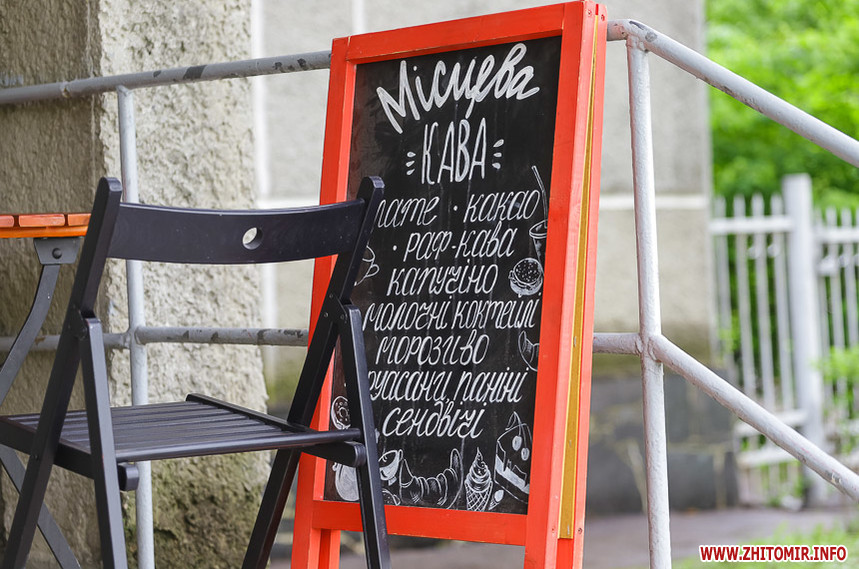 Місцева
КАВА
лате · какао
· раф-кава
капучіно
молочні коктейлі
морозиво
руасани, паніні
сендвічі
WWW.ZHITOMIR.INFO